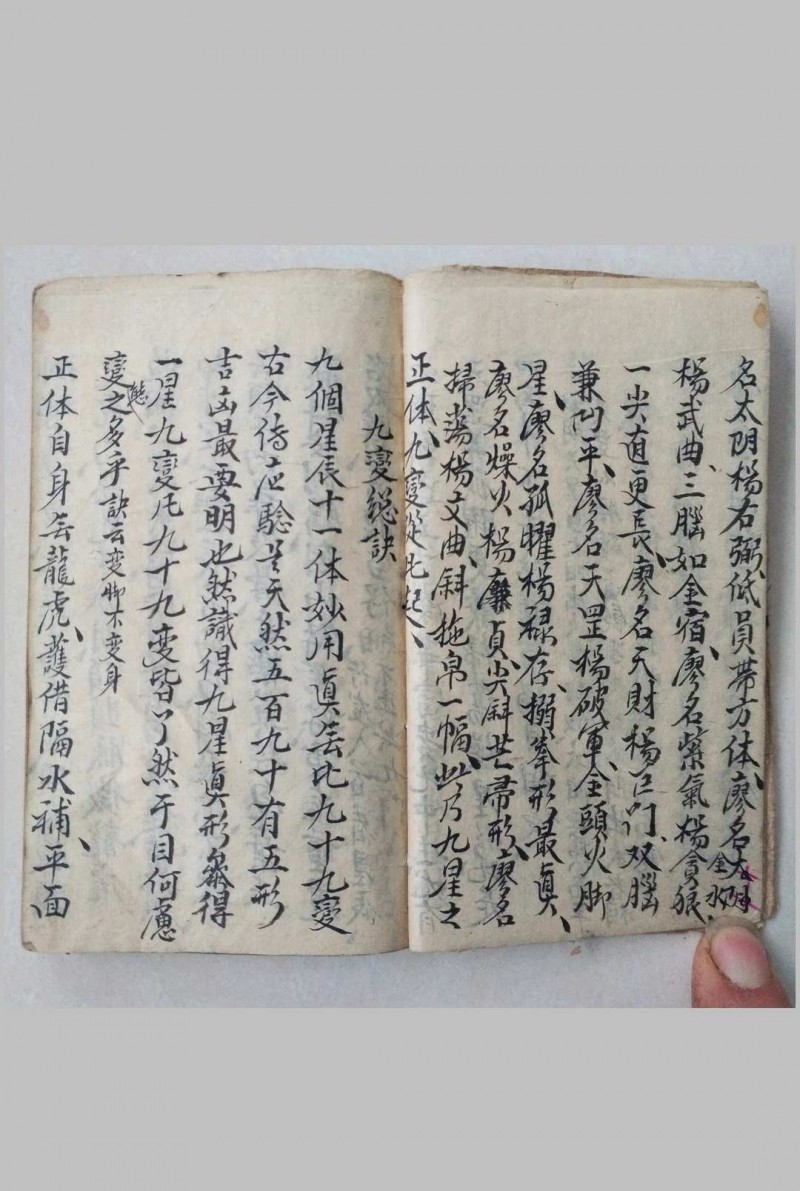 名太阴楊右弼低員帶方体廖名太阴
金水
楊武曲三腦如金宿廖名紫氣楊貪狼
一尖直更長廖名天財楊巨門双腦
兼凹平廖名天罡楊破軍金頭火脚
星廖名孤曜楊禄存搦拳形最真
廖名燥火楊廉貞尖斜芒帚形廖名
掃蕩楊文曲斜拖帛一幅此乃九星之
正体九變從此起
九變總訣
九個星辰十一体妙用真無比九十九變
古今傳應驗是天然五百九十有五形
吉凶最要明也然識得九星真形
一星九變凡九十九變皆了然于目何慮
變之多乎訣云变脚不变身
正体自身無龍虎護借隔水補平面